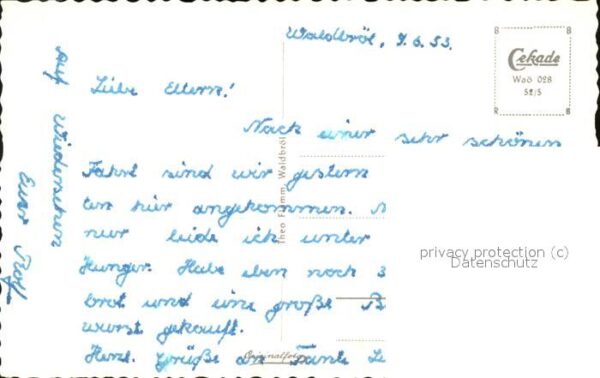 Waldbröl, 9.6.53.
Cekade
Waö 028
52/5
Liebe Eltern!
Nach einer sehr schönen
Fahrt sind wir gestern
ten hier angekommen.
nur leide ich unter
Hunger. Habe eben noch 3
brot und eine große B
wurst gekauft.
Herzl. grüße an Tante
auf Wiedersehen
Euer
Theo Fromm, Waldbröl
Originalfoto
privacy protection (c)
Datenschutz